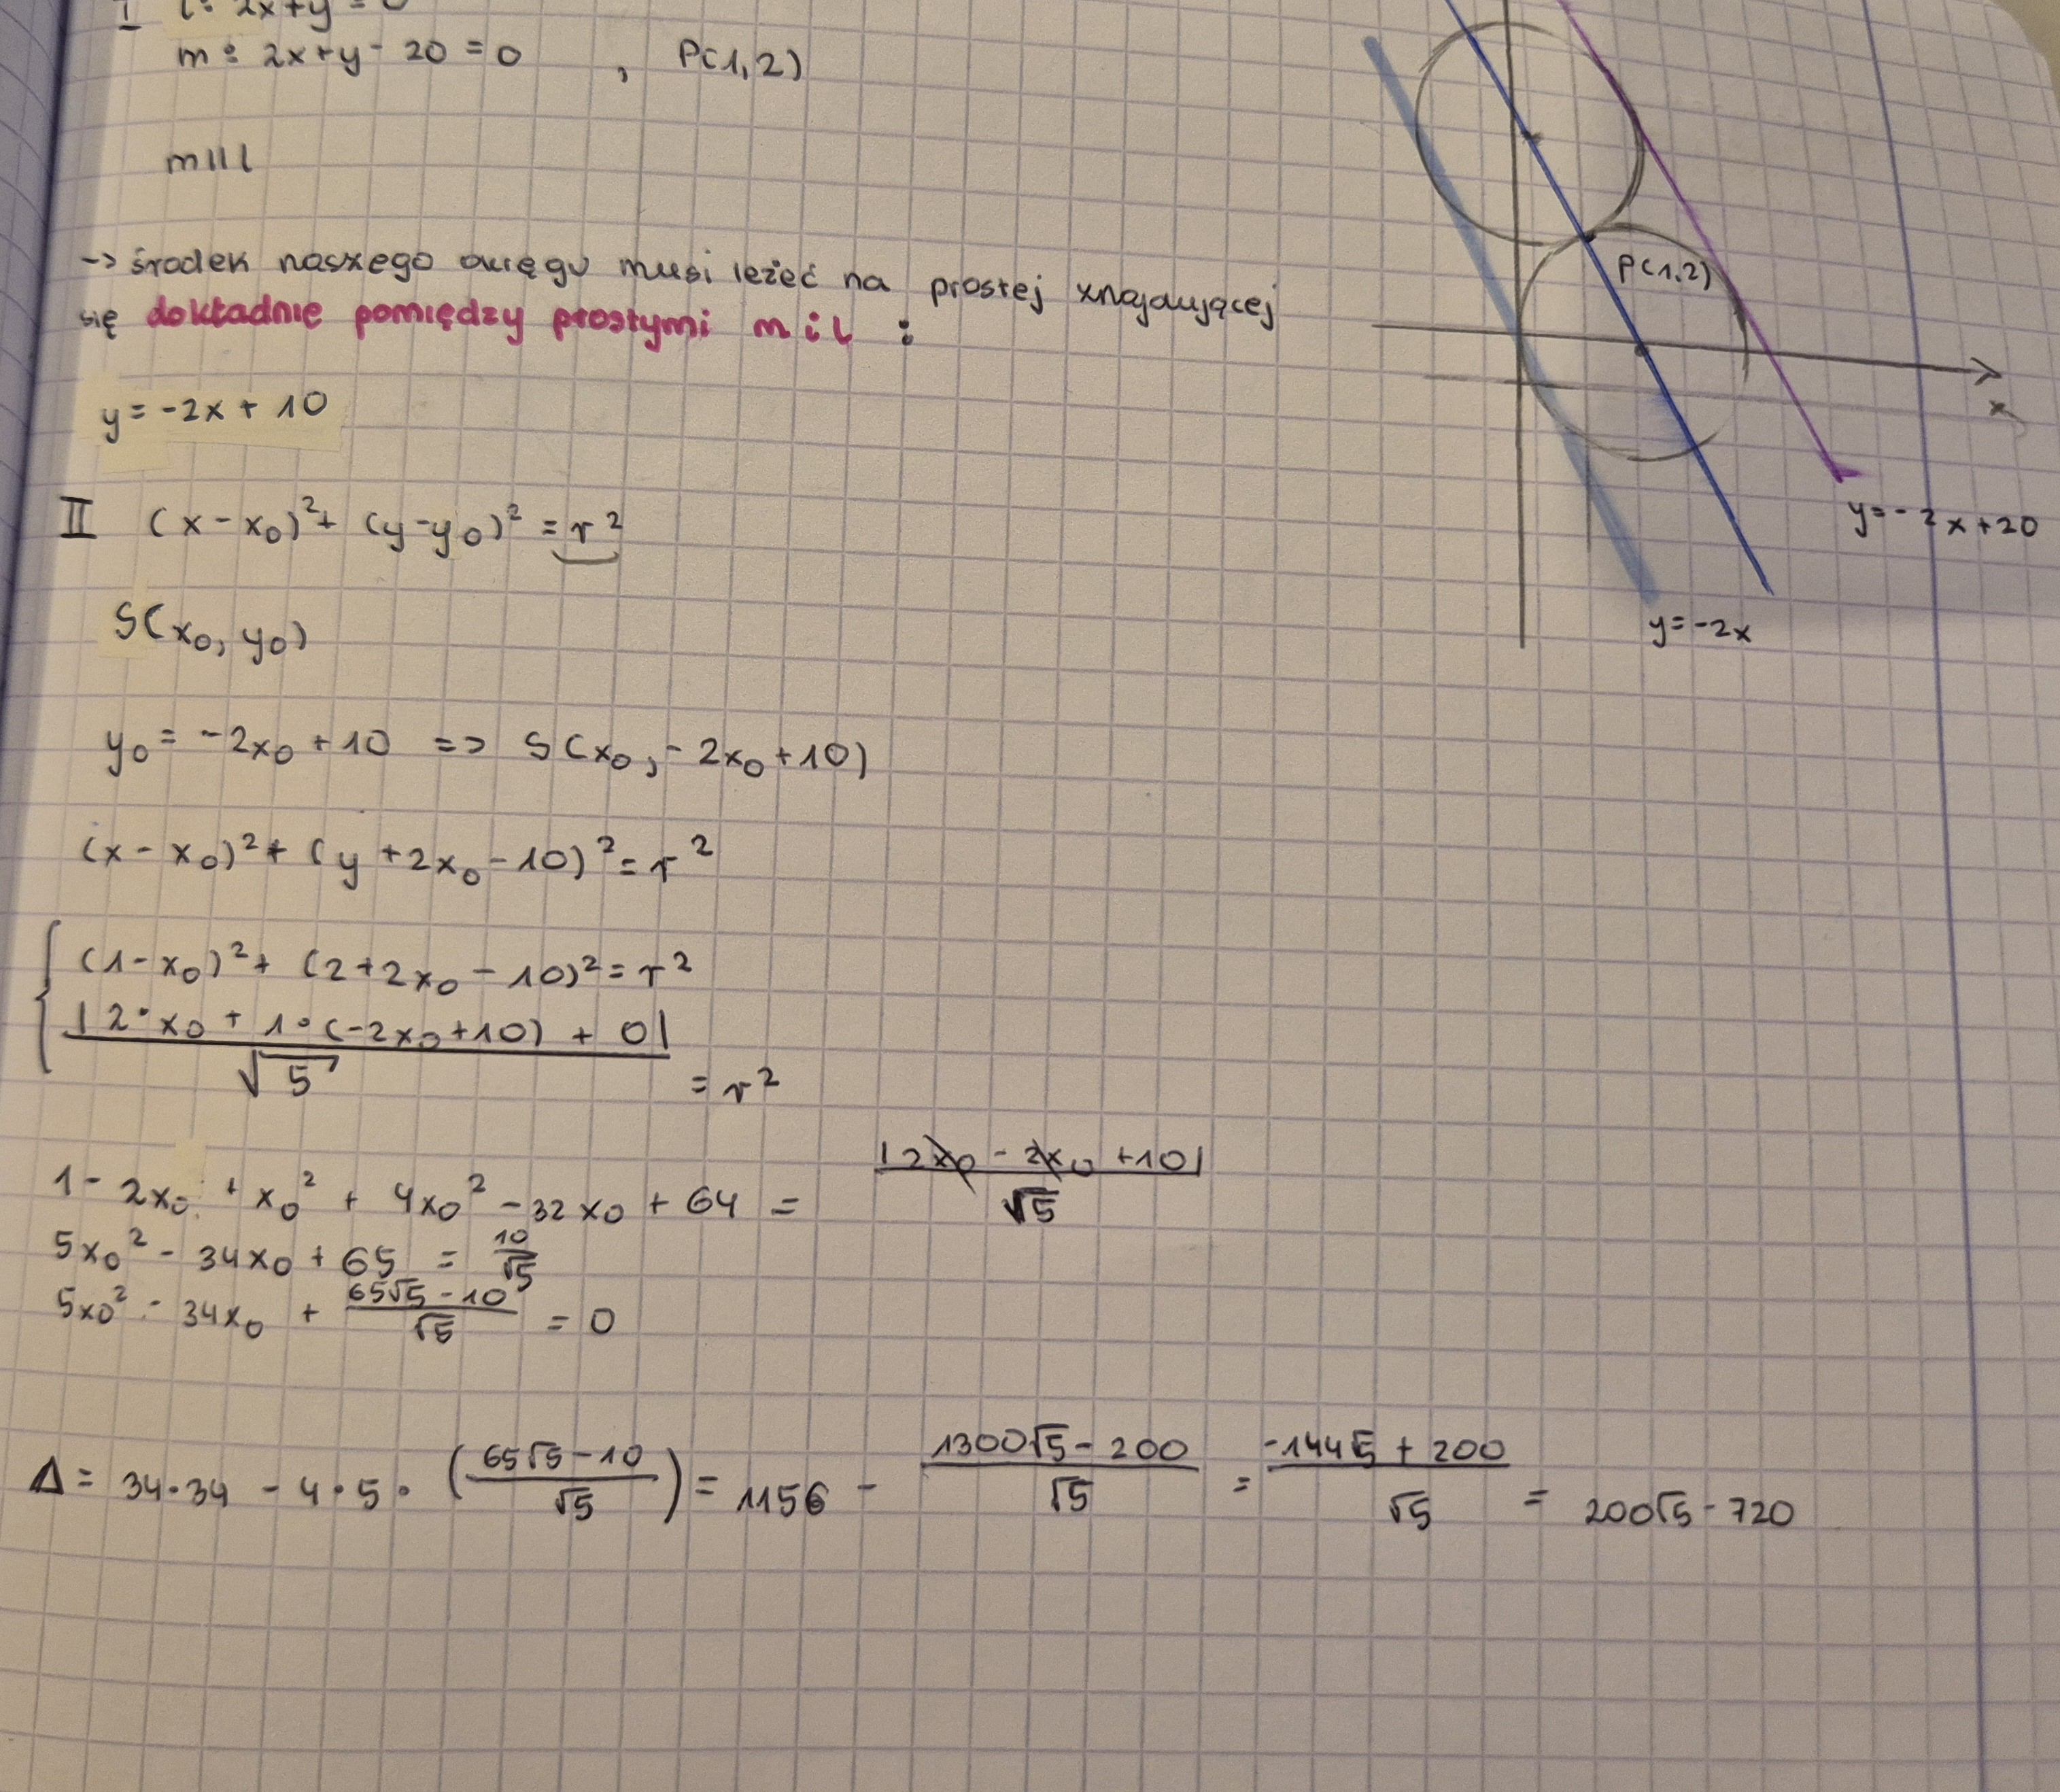 I l: 2x+y = 0
m: 2x+y-20 = 0 , P(1,2)
m || l
-> środek naszego okręgu musi leżeć na prostej znajdującej
się dokładnie pomiędzy prostymi m i l :
y = -2x + 10
II (x - x₀)² + (y - y₀)² = r²
S(x₀, y₀)
y₀ = -2x₀ + 10 => S(x₀, -2x₀ + 10)
(x - x₀)² + (y + 2x₀ - 10)² = r²
(1 - x₀)² + (2 + 2x₀ - 10)² = r²
|2·x₀ + 1·(-2x₀ + 10) + 0| / √5 = r²
1 - 2x₀ + x₀² + 4x₀² - 32x₀ + 64 = |2x₀ - 2x₀ + 10| / √5
5x₀² - 34x₀ + 65 = 10/√5
5x₀² - 34x₀ + (65√5 - 10)/√5 = 0
Δ = 34·34 - 4·5·((65√5 - 10)/√5) = 1156 - (1300√5 - 200)/√5 = (-144√5 + 200)/√5 = 200√5 - 720
P(1,2)
x
y = -2x + 20
y = -2x